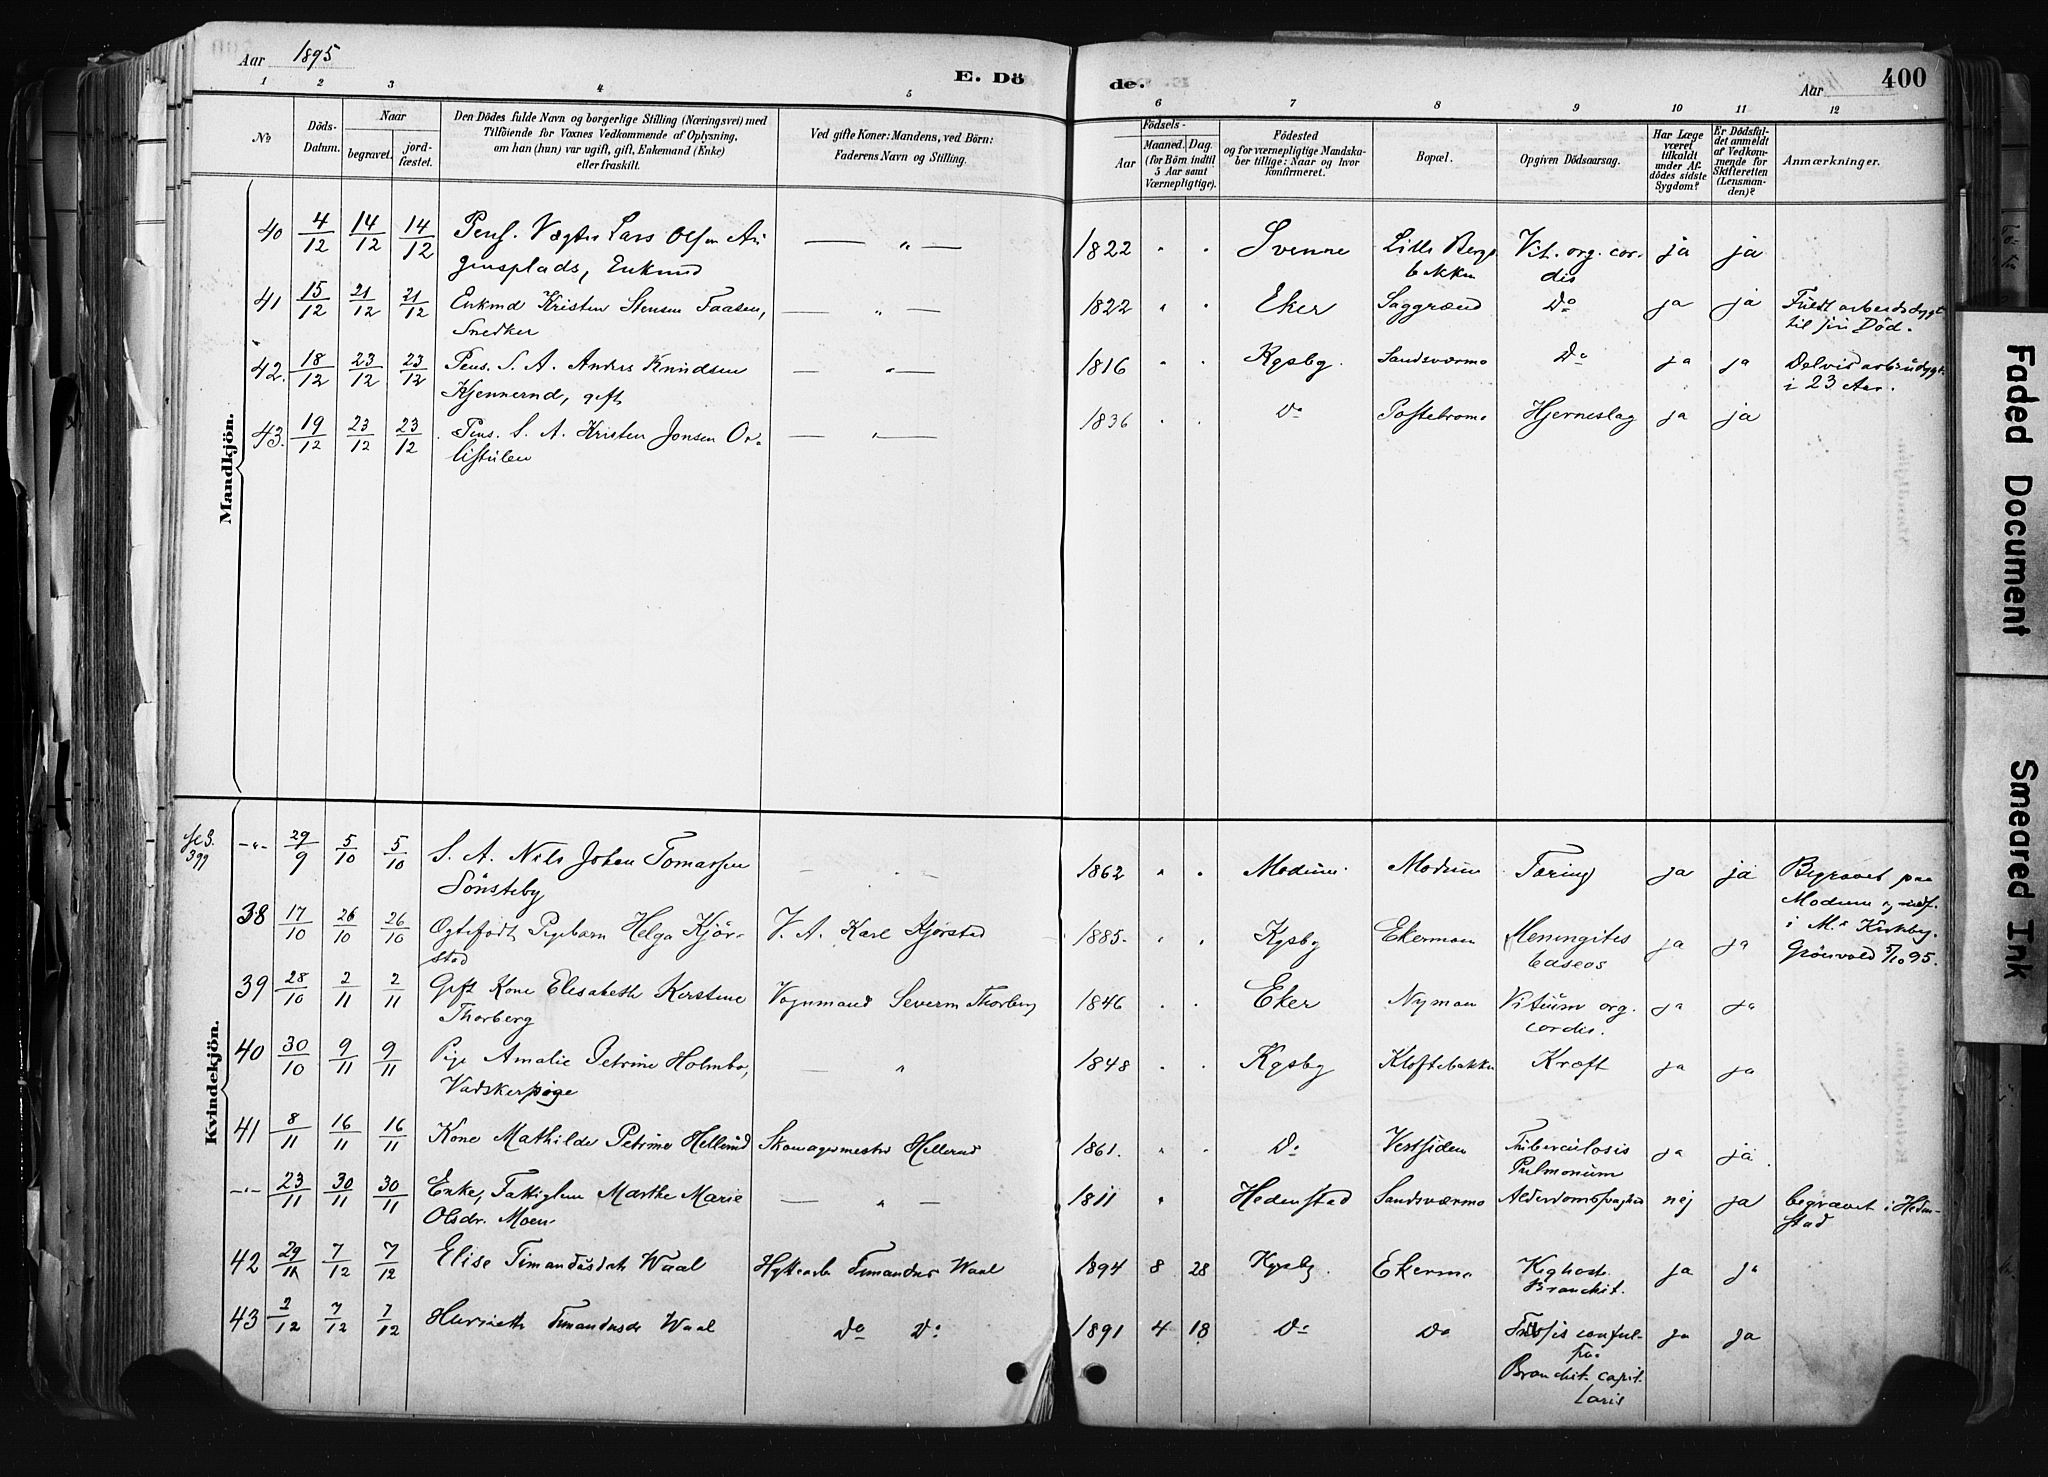 Aar 1895
E. Dö
de.
Aar
400
1 2 3 4 5 6 7 8 9 10 11 12
No
Döds-
Datum.
Naar
begravet.
jord-
fæstet.
Den Dödes fulde Navn og borgerlige Stilling (Næringsvei) med
Tilföiende for Voxnes Vedkommende af Oplysning,
om han (hun) var ugift, gift, Enkemand (Enke)
eller fraskilt.
Ved gifte Koner: Mandens, ved Börn:
Faderens Navn og Stilling.
Födsels-
Aar
Maaned. Dag.
(for Börn indtil
5 Aar samt
Værnepligtige).
Födested
og for værnepligtige Mandska-
ber tillige: Naar og hvor
konfirmeret.
Bopæl.
Opgiven Dödsaarsag.
Har Læge
været
tilkaldt
under Af-
dödes sidste
Sygdom?
Er Dödsfal-
det anmeldt
af Vedkom-
mende for
Skifteretten
(Lensman-
den)?
Anmærkninger.
Mandkjön.
40 4/12 14/12 14/12 Pens. Vægter Lars Olsen 1822 " " Svenne Lille Bergs Vit. org. cor- ja ja
plads, Enkmd bakken dis
41 15/12 21/12 21/12 Enkmd Kristen Stensen Faasen, 1822 " " Eker Saggrænd Do ja ja Fuldt arbeidsdygt
Snedker til sin Död.
42. 18/12 23/12 23/12 Pens. S. A. Anders Knudsen 1816 " " Kgsbg. Sandsværmo Do ja ja Delvis
Kjennerud, gift i 23 Aar.
43. 19/12 23/12 23/12 Pens. S. A. Kristen Jonsen 1836 " " Do Hjerneslag ja ja
Kvindekjön.
se S. 399
-"- 29/9 5/10 5/10 S. A. Nils Johan Tomassen 1862 " " Modum Modum Tæring ja ja Begravet paa
Sönsteby Modum
38 17/10 26/10 26/10 Ogtefödt Pigebarn Helga Kjör- V. A. Karl Kjörstad 1885. " " Kgsbg Ekermoen Meningites ja ja
stad
39 28/10 2/11 2/11 Gift Kone Elisabeth Kirstine Vognmand Severin Thorberg 1846 " " Eker Nymoen Vitium org. ja ja Grönvold 5/10 95.
Thorberg cordis.
40 30/10 9/11 9/11 Pige Amalie Petrine Holmbo, 1848 " " Kgsbg Kloftebakken Kræft ja ja
Vadskerpige
41 8/11 16/11 16/11 Kone Mathilde Petrine Hellerud Skomagermester Hellerud 1861. " " Do Vestsiden Tuberculosis ja ja
Pulmonum
-"- 23/11 30/11 30/11 Enke, Fattiglem Marthe Marie 1811 " Hedenstad Sandsværmo nej ja begravet i Heden-
Olsdr. Moen stad
42 29/11 7/12 7/12 Elise Timandusdatr Waal Hyttearb Timandus Waal 1894 8 28 Kgsbg. Ekermo Kghoste ja ja
Bronchit.
43 2/12 7/12 7/12 Timandusdr Waal Do Do 1891 4 18 Do Do ja ja
Bronchit. capil-
laris
Faded Document
Smeared Ink